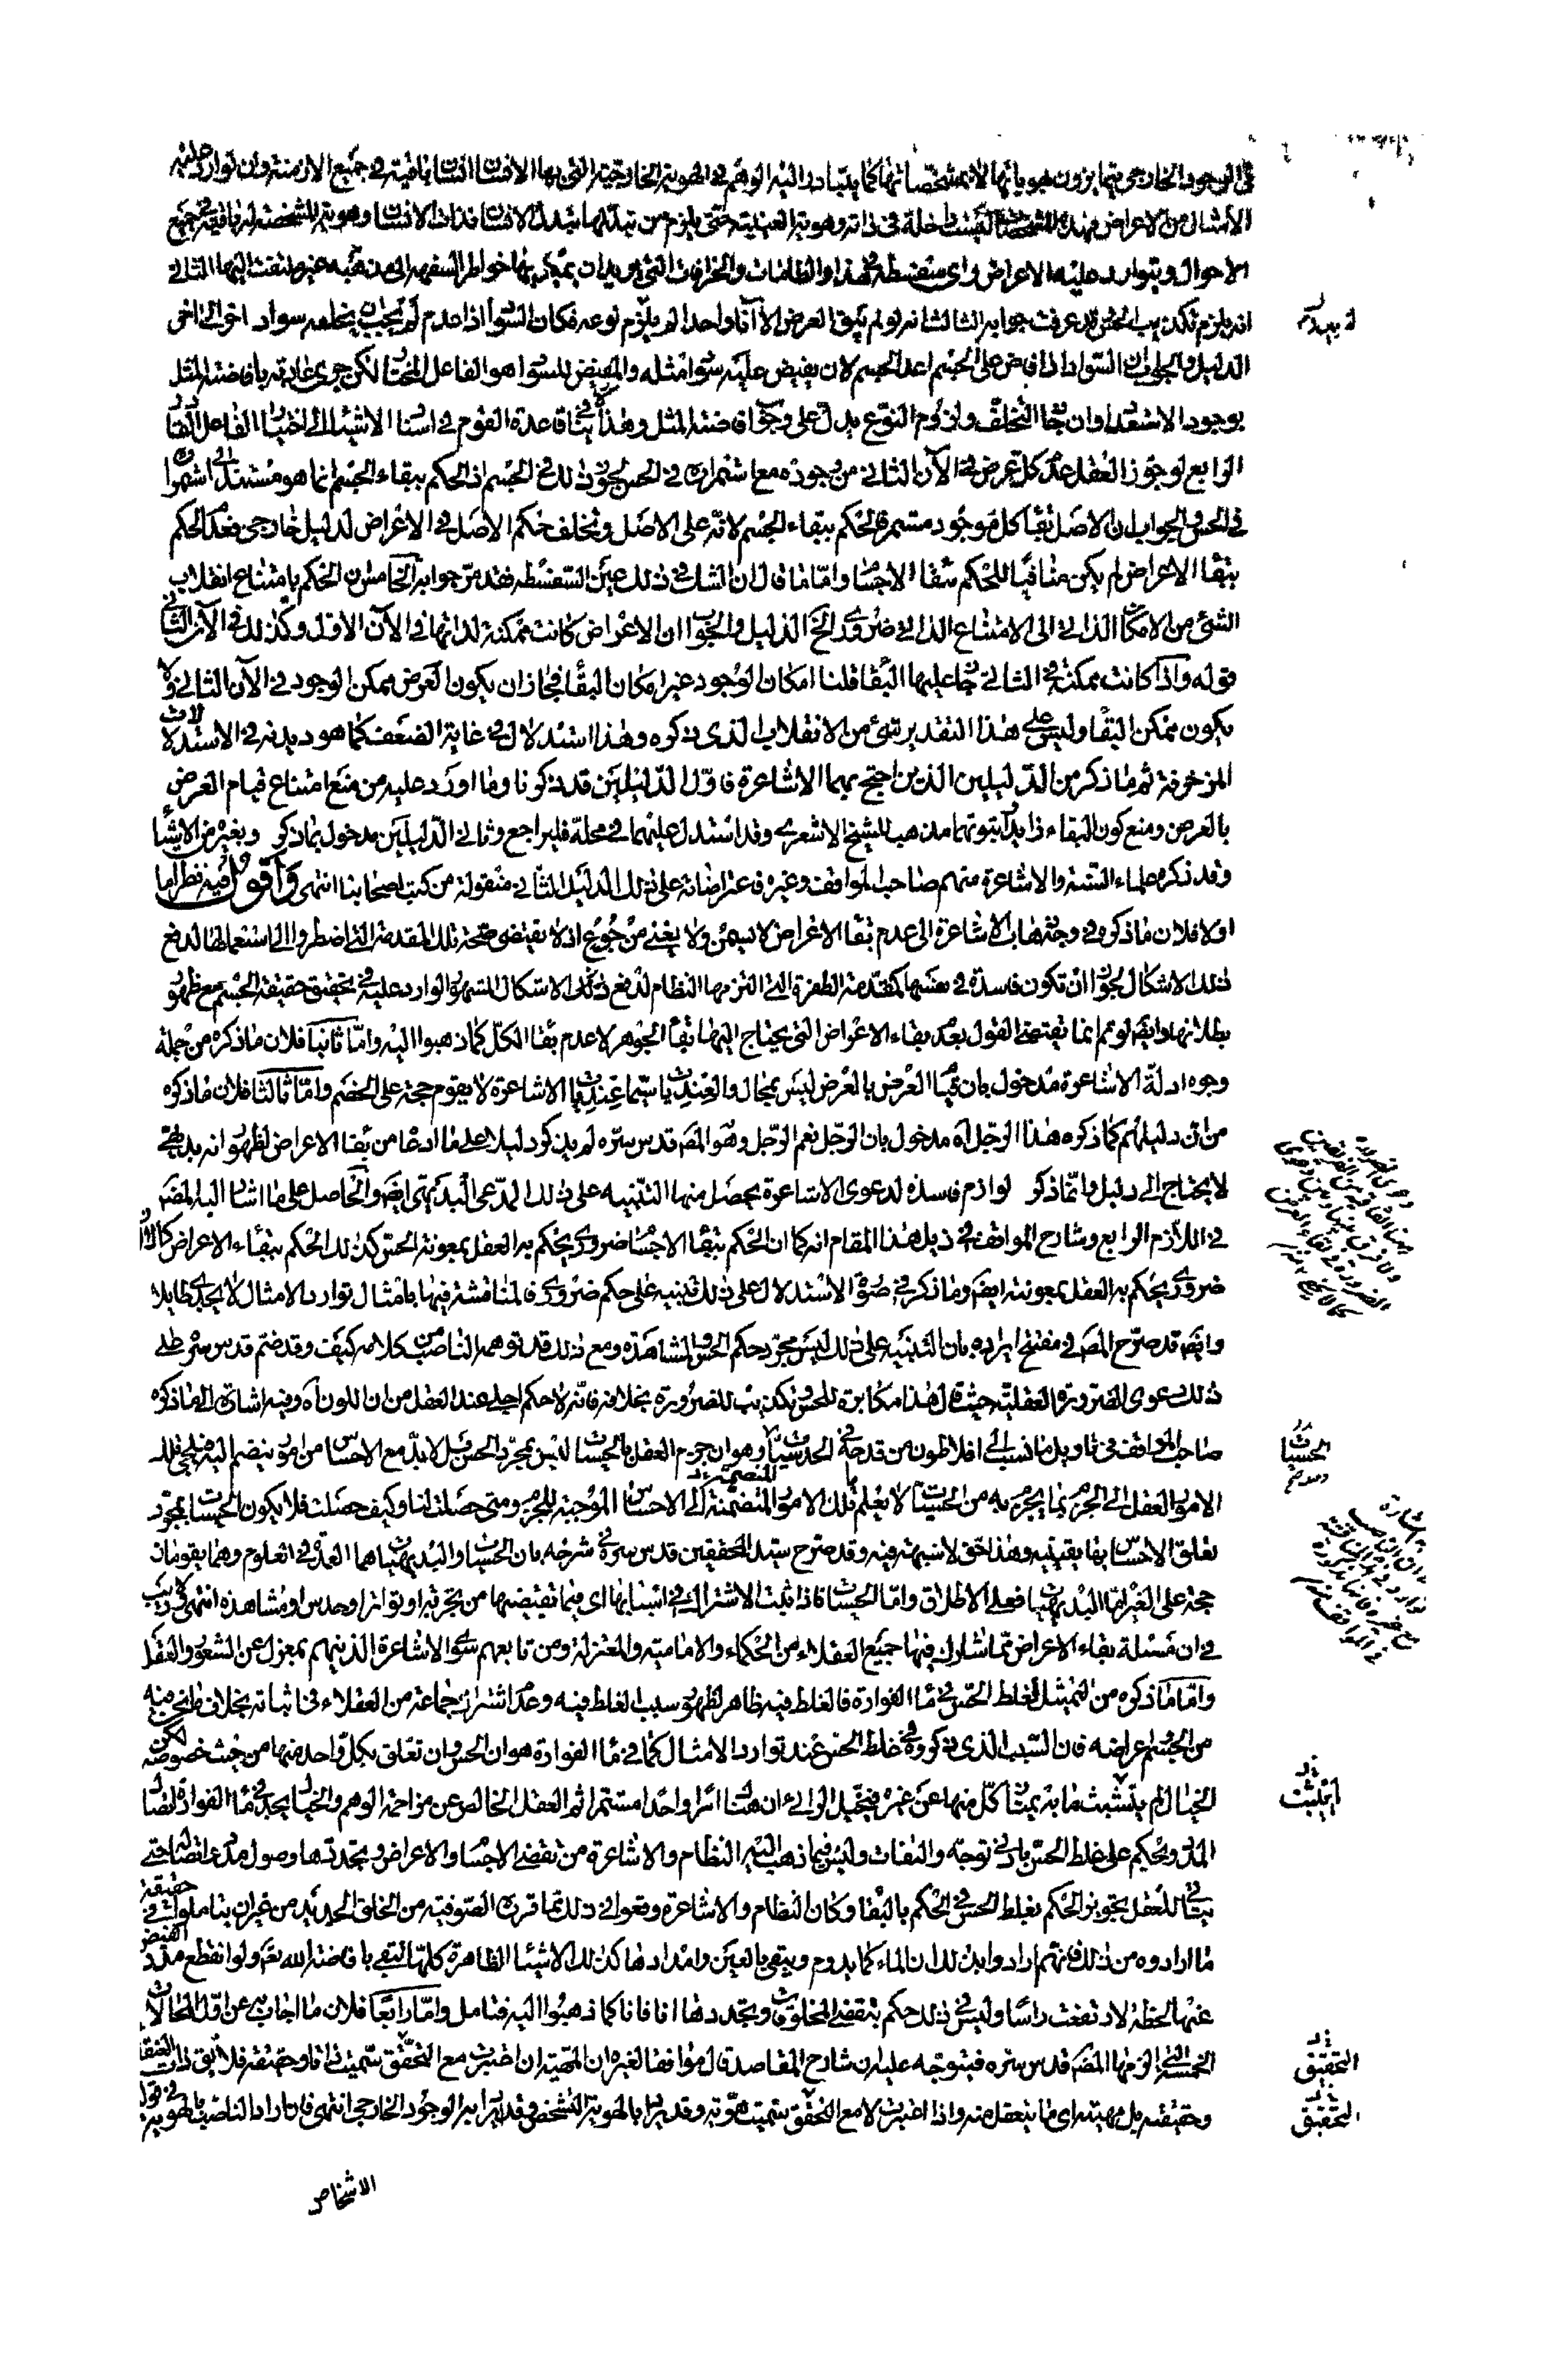 في الوجود الخارجي متمايزون بهوياتهما لا بمشخصاتهما كما يتبادر اليه الوهم في الهوية الخارجية التي بها الانسان انسان باقية في جميع الازمنة وان توارد عليه
الأمثال من الاعراض فهذه المشخصات ليست داخلة في ذاته وهويته العينية حتى يلزم من تبدلها تبدل الانسان فذات الانسان وهويته المشخصة له باقية في جميع
الاحوال ويتوارد عليه الاعراض واي سفسطة في هذا والطامات والخرافات التي يريد ان يميل بها خواطر السفهاء الى مذهبه غير ملتفت اليها الثاني
انه يلزم تكذيب الحس قد عرفت جوابه الثالث انه لو لم يبق العرض الا آنا واحدا لم يلزم نوعه فكان السواد اذا عدم لم يجب ان يخلفه سواد اخر الى اخر
الدليل والجواب ان السواد اذا فاض على الجسم اعد الجسم لان يفيض عليه سواد مثله والمفيض للسواد هو الفاعل المختار لكن جرى عادته بافاضة المثل
بوجود الاستعداد وان جاز التخلف ولزوم النوع يدل على وجوب افاضة المثل وهذا ينافي قاعدة القوم في اسناد الاشياء الى اختيار الفاعل القادر
الرابع لو جوز العقل عدم كل عرض في الآن الثاني من وجوده مع استمراره في الحس لجوز ذلك في الجسم اذ الحكم ببقاء الجسم انما هو مستند الى استمراره
في الحس والجواب ان الاصل بقاء كل موجود مستمر فالحكم ببقاء الجسم لانه على الاصل وتخلف حكم الاصل في الاعراض لدليل خارجي فعدم الحكم
ببقاء الاعراض لم يكن منافيا للحكم ببقاء الاجسام واما ما قال ان الشك في ذلك عين السفسطة فقد مر جوابه الخامس ان الحكم بامتناع انقلاب
الشيء من الامكان الذاتي الى الامتناع الذاتي ضروري الخ الدليل والجواب ان الاعراض كانت ممكنة لذاتها في الآن الاول وكذلك في الآن الثاني
قوله واذا كانت ممكنة في الثاني جاز عليها البقاء قلنا امكان الوجود غير امكان البقاء فجاز ان يكون العرض ممكن الوجود في الآن الثاني ولا
يكون ممكن البقاء وليس على هذا التقدير شيء من الانقلاب الذي ذكره وهذا استدلال في غاية الضعف كما هو ديدنه في الاستدلالات
المزخرفة ثم ما ذكر من الدليلين الذين احتج بهما الاشاعرة فاول الدليلين قد ذكرنا وما اورد عليه من منع امتناع قيام العرض
بالعرض ومنع كون البقاء زايدا ثبوتهما مذهب للشيخ الاشعري وقد استدل عليهما في محله فليراجع وثاني الدليلين مدخول بما ذكره وبغيره من الاشياء
وقد ذكره علماء السنة والاشاعرة منهم صاحب المواقف وغيره فاعتراضاته على ذلك الدليل الثاني منقولة من كتب اصحابنا انتهى واقول فيه نظر اما
اولا فلان ما ذكره في وجه ذهاب الاشاعرة الى عدم بقاء الاعراض لا يسمن ولا يغني من جوع اذ لا يقتضي صحة تلك المقدمة التي اضطروا الى استعمالها لدفع
ذلك الاشكال لجواز ان تكون فاسدة في نفسها كمقدمة الطفرة التي التزمها النظام لدفع ذلك الاشكال المشهور الوارد عليه في تحقيق حقيقة الجسم مع ظهور
بطلانها وايضا لو تم انما يقتضي القول بعدم بقاء الاعراض التي يحتاج اليها بقاء الجوهر لا عدم بقاء الكل كما ذهبوا اليه واما ثانيا فلان ما ذكره من جملة
وجوه ادلة الاشاعرة مدخول بان قيام العرض بالعرض ليس بمحال والعنديات سيما عنديات الاشاعرة لا يقوم حجة على الخصم واما ثالثا فلان ما ذكره
من ان دليلهم كما ذكره هذا الرجل اه مدخول بان الرجل نعم الرجل وهو المص قدس سره لم يذكر دليلا على ما ادعاه من بقاء الاعراض لظهور انه بديهي
لا يحتاج الى دليل وانما ذكر لوازم فاسدة لدعوى الاشاعرة يحصل منها التنبيه على ذلك المدعى البديهي ايضا والحاصل على ما اشار اليه المص
في اللازم الرابع وشارح المواقف في ذيل هذا المقام انه كما ان الحكم ببقاء الاجسام ضروري يحكم به العقل بمعونة الحس كذلك الحكم ببقاء الاعراض كالالوان
ضروري يحكم به العقل بمعونته ايضا وما ذكر في صورة الاستدلال على ذلك تنبيه على حكم ضروري فالمناقشة فيها بامثال توارد الامثال لا يجدي طايلا
وايضا قد صرح المص في مفتتح ايراده بان التنبيه على ذلك ليس مجرد حكم الحس والمشاهدة ومع ذلك قد توهمه الناصب من كلامه كيف وقد ضم قدس سره على
ذلك دعوى الضرورة العقلية حيث قال هذا مكابرة للحس وتكذيب للضرورة بخلافه فانه لا حكم اجلى عند العقل من ان اللون اه وفيه اشارة الى ما ذكره
صاحب المواقف في تاويل ما نسب الى افلاطون من قدحه في الحسيات وهو ان جزم العقل بالحسيات ليس بمجرد الحس بل لا بد مع الاحساس من امور ينضم اليه فيلجئ تلك
الامور العقل الى الجزم بما يجزم به من الحسيات لا يعلم ما تلك الامور المنضمة الى الاحساس الموجبة للجزم ومتى حصلت لنا وكيف حصلت فلا يكون الحسيات بمجرد
تعلق الاحساس بها يقينية وهذا حق لا شبهة فيه وقد صرح سيد المحققين قدس سره في شرحه بان الحسيات والبديهيات هما العمدة في العلوم وهما يقومان
حجة على الغير اما البديهيات فعلى الاطلاق واما الحسيات فاذا ثبت الاشتراك في اسبابها اي فيما تقتضيها من تجربة او تواتر او حدس او مشاهدة انتهى ولا ريب
في ان مسئلة بقاء الاعراض مما شارك فيها جميع العقلاء من الحكماء والامامية والمعتزلة ومن تابعهم سوى الاشاعرة الذين هم بمعزل عن الشعور والعقل
واما ما ذكره من التمثيل لغلط الحس في ماء الفوارة فالغلط فيه ظاهر لظهور سبب الغلط فيه وعدم اشتراك جماعة من العقلاء في اثباته بخلاف ما نحن فيه
من الجسم واعراضه فان السبب الذي ذكروه في غلط الحس عند توارد الامثال كما في ماء الفوارة هو ان الحس وان تعلق بكل واحد منها من حيث خصوصه لكن
الخيال لم يتشبث ما به يمتاز كل منها عن غيره فيتخيل الرائي ان هناك امرا واحدا مستمرا ثم العقل الخالص عن مزاحمة الوهم والخيال يجد في ماء الفوارة اتصال
المدد ويحكم على غلط الحس بادنى توجه والتفات وليس فيما ذهب اليه النظام والاشاعرة من تقضي الاجسام والاعراض وتجددها وصول مدد واتصال حتى
يتاتى للعقل تجويز الحكم بغلط الحس في الحكم بالبقاء وكان النظام والاشاعرة وقعوا في ذلك مما قرره الصوفية من الخلق الجديد من غير ان يتاملوا في حقيقة
ما ارادوه من ذلك فانهم ارادوا بذلك ان الماء كما يدوم ويبقى بالعين وامدادها كذلك الاشياء الظاهرة كلها تبقى بافاضة الله تع ولو انقطع مدد الفيض
عنها لحظة لارتفعت راسا وليس في ذلك حكم بتقضي المخلوقات وتجددها انا فانا كما ذهبوا اليه فتامل واما رابعا فلان ما اجاب به عن اول المحالات
الخمسة التي الزمها المص قدس سره فيتوجه عليه ان شارح المقاصد قال موافقا لغيره ان المهية ان اعتبرت مع التحقق سميت ذاتا وحقيقة فلا يق ذات العنقاء
وحقيقته بل مهيته اي ما يتعقل منه واذا اعتبرت لا مع التحقق سميت هوية وقد يراد بالهوية التشخص وقد يراد به الوجود الخارجي انتهى فان اراد الناصب بالهوية في قوله
الاشخاص
الحسيات
التحقيق
التحقيق